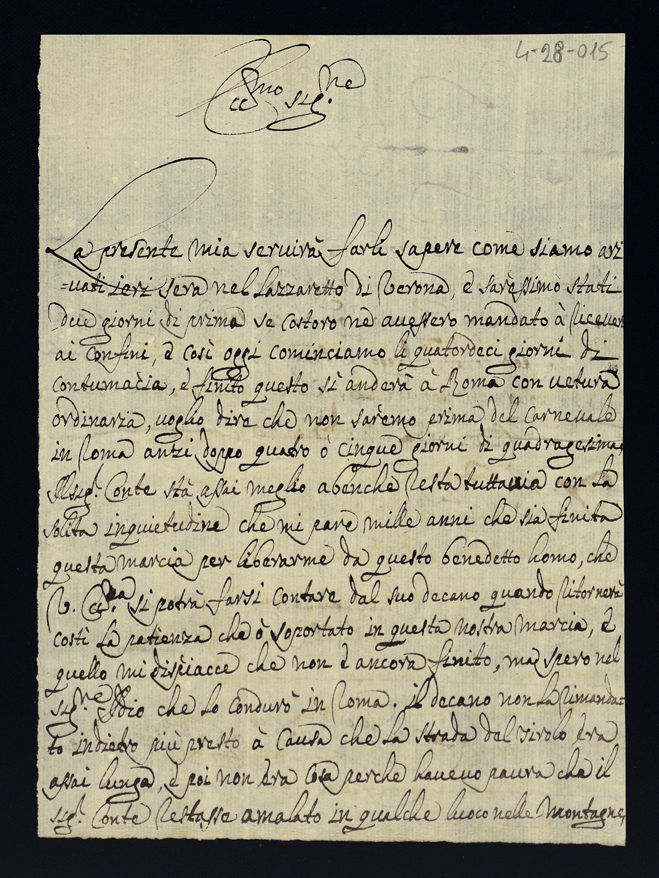 4-28-015
Ecc.mo sig.ne
La presente mia seruirà farli sapere come siamo ari
=uati ieri sera nel Lazzaretto di Verona, è saressimo stati
due giorni di prima se costoro ne auessero mandato à riceuer
ai confini, è così oggi cominciamo li quatordeci giorni di
contumacia, è finito questo si anderà à Roma con uetura
ordinaria, uoglio dire che non saremo prima del Carneuale
in Roma anzi doppo quatro ò cinque giorni di quadragesima,
Il sig.r Conte stà assai meglio abenche resta tuttauia con la
solita inquietudine che mi pare mille anni che sia finita
questa marcia per liberarme da questo benedetto homo, che
V. Ecc.za si potrà farsi contare dal suo decano quando ritornerà
costì la patienza che ò soportato in questa nostra marcia, è
quello mi dispiacce che non è ancora finito, ma spero nel
sig.re Iddio che lo condurò in Roma. il decano non la rimanda=
to indietro più presto à causa che la strada del Tirolo era
assai lunga, è poi non era cosa perche haueuo paura che il
sig.r Conte restasse amalato in qualche luoco nelle montagne,